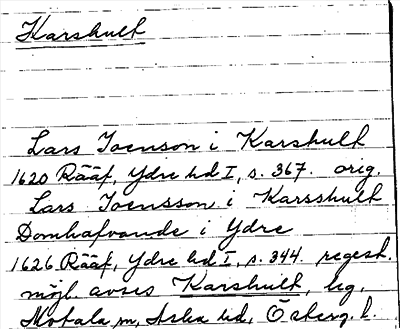 Karshult
Lars Joenson i Karshult
1620 Rääf, Ydre hd I, s. 367. orig.
Lars Joensson i Karsshult
Domhafvande i Ydre
1626 Rääf, Ydre hd I, s. 344. regest.
möjl. avses Karshult, beg.
Motala sn, Aska hd, Ösberg. l.